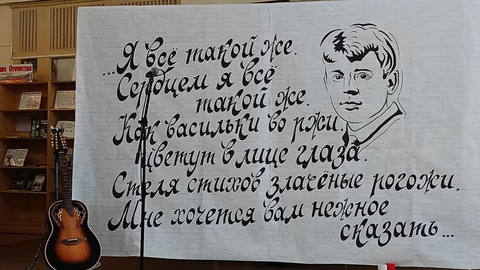 ...Я всё такой же.
Сердцем я всё
такой же.
Как васильки во ржи,
цветут в лице глаза.
Стеля стихов злачёные рогожи,
Мне хочется вам нежное
сказать...